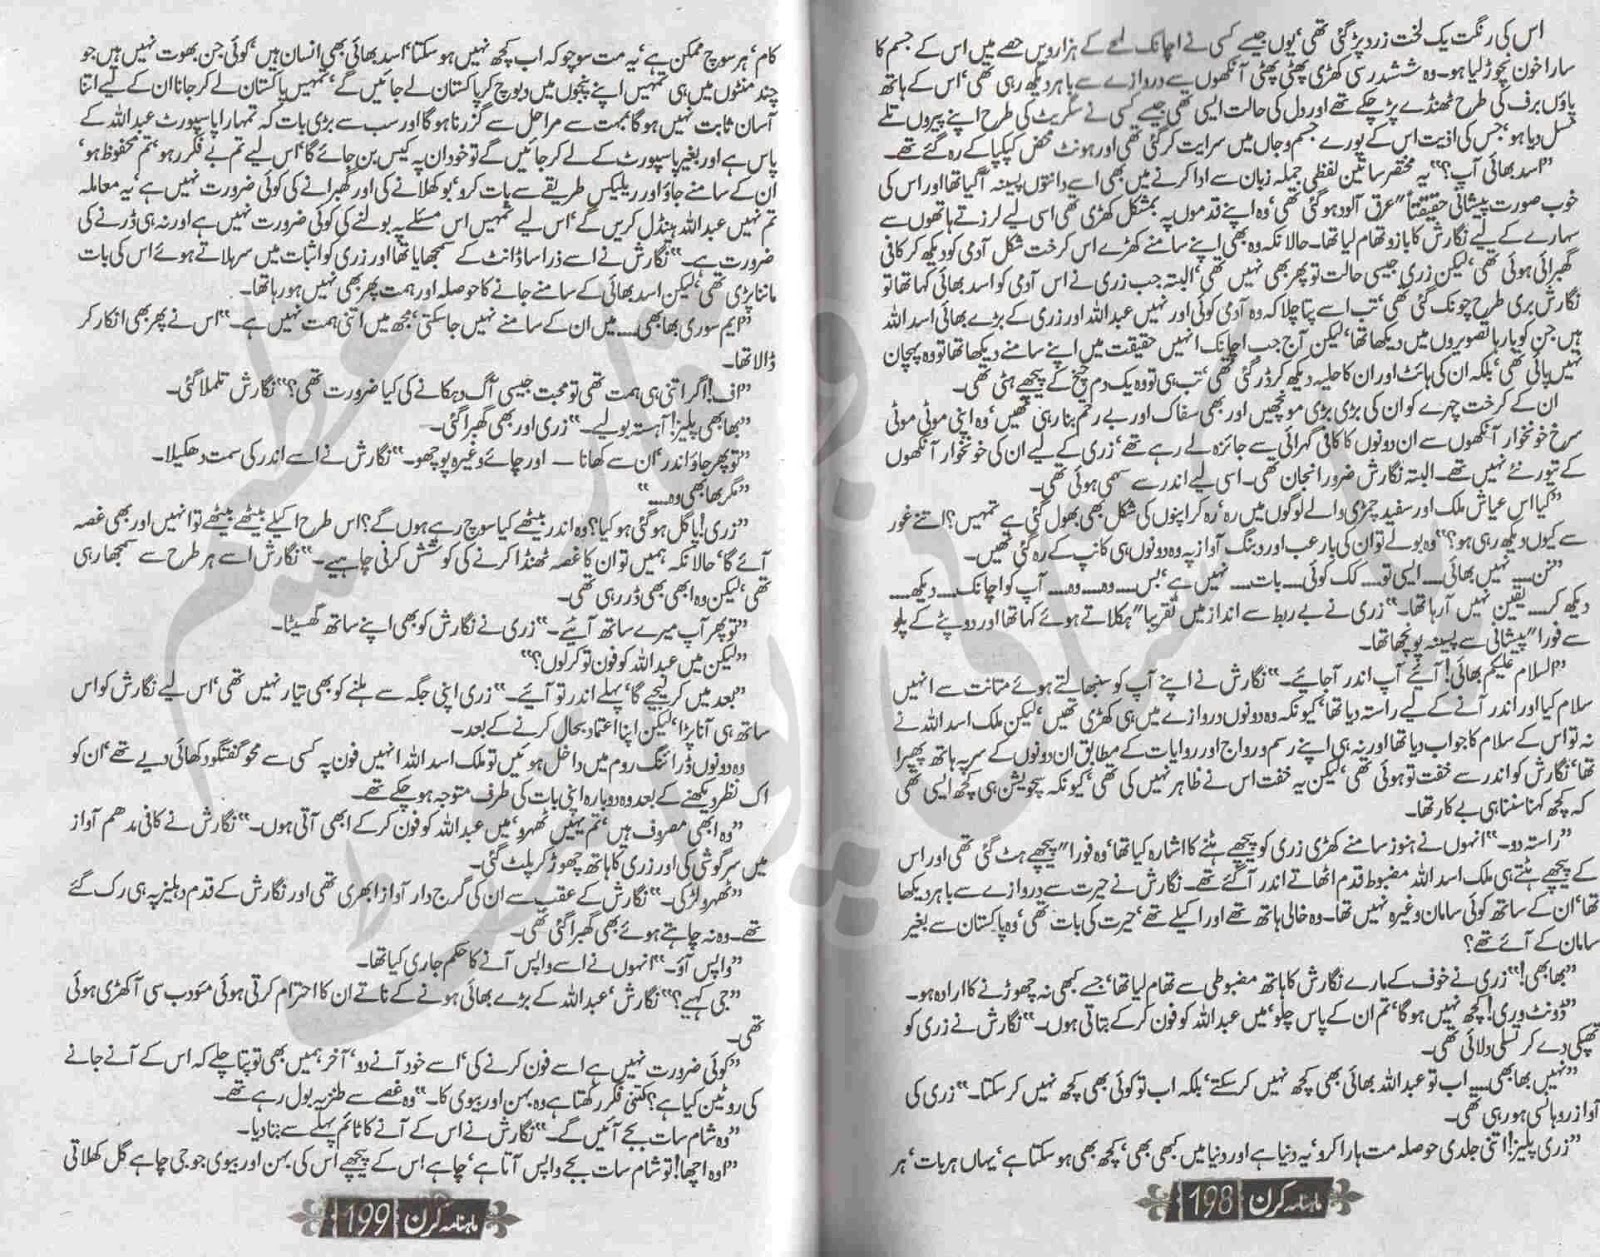 اس کی رنگت یک لخت زرد پڑ گئی تھی‘ یوں جیسے کسی نے اچانک لمحے کے ہزارویں حصے میں اس کے جسم کا
سارا خون نچوڑ لیا ہو۔ وہ ششدر سی کھڑی پھٹی پھٹی آنکھوں سے دروازے سے باہر دیکھ رہی تھی‘ اس کے ہاتھ
پاؤں برف کی طرح ٹھنڈے پڑ چکے تھے اور دل کی حالت ایسی تھی جیسے کسی نے سگریٹ کی طرح اپنے پیروں تلے
مسل دیا ہو‘ جس کی اذیت اس کے پورے جسم و جاں میں سرایت کر گئی تھی اور ہونٹ محض کپکپا کے رہ گئے تھے۔
”اسد بھائی آپ؟“ یہ مختصر سا تین لفظی جملہ زبان سے ادا کرنے میں بھی اسے دانتوں پسینہ آ گیا تھا اور اس کی
خوب صورت پیشانی حقیقتاً عرق آلود ہو گئی تھی‘ وہ اپنے قدموں پہ بمشکل کھڑی تھی اسی لیے لرزتے ہاتھوں سے
سہارے کے لیے نگارش کا بازو تھام لیا تھا۔ حالانکہ وہ بھی اپنے سامنے کھڑے اس کرخت شکل آدمی کو دیکھ کر کافی
گھبرائی ہوئی تھی‘ لیکن زری جیسی حالت تو پھر بھی نہیں تھی‘ البتہ جب زری نے اس آدمی کو اسد بھائی کہا تھا تو
نگارش بری طرح چونک گئی تھی‘ تب اسے پتا چلا کہ وہ آدمی کوئی اور نہیں عبداللہ اور زری کے بڑے بھائی اسد اللہ
ہیں جن کو بارہا تصویروں میں دیکھا تھا‘ لیکن آج جب اچانک انہیں حقیقت میں اپنے سامنے دیکھا تھا تو وہ پہچان
نہیں پائی تھی‘ بلکہ ان کی ہائٹ اور ان کا حلیہ دیکھ کر ڈر گئی تھی‘ تب ہی تو وہ یک دم چیخ کے پیچھے ہٹی تھی۔
ان کے کرخت چہرے کو ان کی بڑی بڑی مونچھیں اور بھی سفاک اور بے رحم بنا رہی تھیں‘ وہ اپنی موٹی موٹی
سرخ خونخوار آنکھوں سے ان دونوں کا کافی گہرائی سے جائزہ لے رہے تھے‘ زری کے لیے ان کی خونخوار آنکھوں
کے تیور نئے نہیں تھے۔ البتہ نگارش ضرور انجان تھی۔ اسی لیے اندر سے سہمی ہوئی تھی۔
”کیا اس عیاش ملک اور سفید چمڑی والے لوگوں میں رہ‘ رہ کر اپنوں کی شکل بھی بھول گئی ہے تمہیں؟ اتنے غور
سے کیوں دیکھ رہی ہو؟“ وہ بولے تو ان کی بارعب اور دبنگ آواز پہ وہ دونوں ہی کانپ کے رہ گئی تھیں۔
”نن.... نہیں بھائی.... ایسی تو.... کک کوئی.... بات.... نہیں ہے‘ بس.... وہ.... وہ.... آپ کو اچانک.... دیکھ....
دیکھ کر.... یقین نہیں آ رہا تھا۔“ زری نے بے ربط سے انداز میں تقریباً ہکلاتے ہوئے کہا تھا اور دوپٹے کے پلو
سے فوراً پیشانی سے پسینہ پونچھا تھا۔
”السلام علیکم بھائی! آئیے آپ اندر آجائیے۔“ نگارش نے اپنے آپ کو سنبھالتے ہوئے متانت سے انہیں
سلام کیا اور اندر آنے کے لیے راستہ دیا تھا‘ کیونکہ وہ دونوں دروازے میں ہی کھڑی تھیں‘ لیکن ملک اسد اللہ نے
نہ تو اس کے سلام کا جواب دیا تھا اور نہ ہی اپنے رسم و رواج اور روایات کے مطابق ان دونوں کے سر پہ ہاتھ پھیرا
تھا‘ نگارش کو اندر سے خفت تو ہوئی تھی‘ لیکن یہ خفت اس نے ظاہر نہیں کی تھی‘ کیونکہ سچویشن ہی کچھ ایسی تھی
کہ کچھ کہنا سننا ہی بے کار تھا۔
”راستہ دو۔“ انہوں نے ہنوز سامنے کھڑی زری کو پیچھے ہٹنے کا اشارہ کیا تھا‘ وہ فوراً پیچھے ہٹ گئی تھی اور اس
کے پیچھے ہٹتے ہی ملک اسد اللہ مضبوط قدم اٹھاتے اندر آ گئے تھے۔ نگارش نے حیرت سے دروازے سے باہر دیکھا
تھا‘ ان کے ساتھ کوئی سامان وغیرہ نہیں تھا۔ وہ خالی ہاتھ تھے اور اکیلے تھے‘ حیرت کی بات تھی‘ وہ پاکستان سے بغیر
سامان کے آئے تھے؟
”بھابھی!“ زری نے خوف کے مارے نگارش کا ہاتھ مضبوطی سے تھام لیا تھا‘ جسے کبھی نہ چھوڑنے کا ارادہ ہو۔
”ڈونٹ وری! کچھ نہیں ہوگا‘ تم ان کے پاس چلو‘ میں عبداللہ کو فون کر کے بتاتی ہوں۔“ نگارش نے زری کو
تھپکی دے کر تسلی دلائی تھی۔
”نہیں بھابھی.... اب تو عبداللہ بھائی بھی کچھ نہیں کر سکتے‘ بلکہ اب تو کوئی بھی کچھ نہیں کر سکتا۔“ زری کی
آواز روہانسی ہو رہی تھی۔
”زری پلیز! اتنی جلدی حوصلہ مت ہارا کرو‘ یہ دنیا ہے اور دنیا میں کبھی بھی‘ کچھ بھی ہو سکتا ہے‘ یہاں ہر بات‘ ہر
ماہنامہ کرن 198
کام‘ ہر سوچ ممکن ہے‘ یہ مت سوچو کہ اب کچھ نہیں ہو سکتا‘ اسد بھائی بھی انسان ہیں‘ کوئی جن بھوت نہیں ہیں جو
چند منٹوں میں ہی تمہیں اپنے پنجوں میں دبوچ کر پاکستان لے جائیں گے‘ تمہیں پاکستان لے کر جانا ان کے لیے اتنا
آسان ثابت نہیں ہوگا‘ بہت سے مراحل سے گزرنا ہوگا اور سب سے بڑی بات کہ تمہارا پاسپورٹ عبداللہ کے
پاس ہے اور بغیر پاسپورٹ کے لے کر جائیں گے تو خود ان پہ کیس بن جائے گا‘ اس لیے تم بے فکر رہو‘ تم محفوظ ہو‘
ان کے سامنے جاؤ اور ریلیکس طریقے سے بات کرو‘ بوکھلانے کی اور گھبرانے کی کوئی ضرورت نہیں ہے‘ یہ معاملہ
تم نہیں عبداللہ ہینڈل کریں گے‘ اس لیے تمہیں اس مسئلے پہ بولنے کی کوئی ضرورت نہیں ہے اور نہ ہی ڈرنے کی
ضرورت ہے۔“ نگارش نے اسے ذرا سا ڈانٹ کے سمجھایا تھا اور زری کو اثبات میں سر ہلاتے ہوئے اس کی بات
ماننا پڑی تھی‘ لیکن اسد بھائی کے سامنے جانے کا حوصلہ اور ہمت پھر بھی نہیں ہو رہا تھا۔
”ایم سوری بھابھی.... میں ان کے سامنے نہیں جا سکتی‘ مجھ میں اتنی ہمت نہیں ہے۔“ اس نے پھر بھی انکار کر
ڈالا تھا۔
”اف! اگر اتنی ہی ہمت تھی تو محبت جیسی آگ دہکانے کی کیا ضرورت تھی؟“ نگارش تلملا گئی۔
”بھابھی پلیز! آہستہ بولیے۔“ زری اور بھی گھبرا گئی۔
”تو پھر جاؤ اندر‘ ان سے کھانا — اور چائے وغیرہ پوچھو۔“ نگارش نے اسے اندر کی سمت دھکیلا۔
”مگر بھابھی وہ....“
”زری! پاگل ہو گئی ہو کیا؟ وہ اندر بیٹھے کیا سوچ رہے ہوں گے؟ اس طرح اکیلے بیٹھے بیٹھے تو انہیں اور بھی غصہ
آئے گا‘ حالانکہ ہمیں تو ان کا غصہ ٹھنڈا کرنے کی کوشش کرنی چاہیے۔“ نگارش اسے ہر طرح سے سمجھا رہی
تھی‘ لیکن وہ ابھی بھی ڈر رہی تھی۔
”تو پھر آپ میرے ساتھ آئیے۔“ زری نے نگارش کو بھی اپنے ساتھ گھسیٹا۔
”لیکن میں عبداللہ کو فون تو کر لوں؟“
”بعد میں کر لیجیے گا‘ پہلے اندر تو آئیے۔“ زری اپنی جگہ سے ہلنے کو بھی تیار نہیں تھی‘ اس لیے نگارش کو اس
ساتھ ہی آنا پڑا‘ لیکن اپنا اعتماد بحال کرنے کے بعد۔
وہ دونوں ڈرائنگ روم میں داخل ہوئیں تو ملک اسد اللہ انہیں فون پہ کسی سے محو گفتگو دکھائی دیے تھے‘ ان کو
اک نظر دیکھنے کے بعد وہ دوبارہ اپنی بات کی طرف متوجہ ہو چکے تھے۔
”وہ ابھی مصروف ہیں‘ تم یہیں ٹھہرو‘ میں عبداللہ کو فون کر کے ابھی آتی ہوں۔“ نگارش نے کافی مدھم آواز
میں سرگوشی کی اور زری کا ہاتھ چھوڑ کر پلٹ گئی۔
”ٹھہرو لڑکی۔“ نگارش کے عقب سے ان کی گرج دار آواز ابھری تھی اور نگارش کے قدم دہلیز پہ ہی رک گئے
تھے۔ وہ نہ چاہتے ہوئے بھی گھبرا گئی تھی۔
”واپس آؤ۔“ انہوں نے اسے واپس آنے کا حکم جاری کیا تھا۔
”جی کہیے؟“ نگارش‘ عبداللہ کے بڑے بھائی ہونے کے ناتے ان کا احترام کرتی ہوئی مؤدب سی آکھڑی ہوئی
تھی۔
”کوئی ضرورت نہیں ہے اسے فون کرنے کی‘ اسے خود آنے دو‘ آخر ہمیں بھی تو پتا چلے کہ اس کے آنے جانے
کی روٹین کیا ہے؟ کتنی فکر رکھتا ہے وہ بہن اور بیوی کا۔“ وہ غصے سے طنزیہ بول رہے تھے۔
”وہ شام سات بجے آئیں گے۔“ نگارش نے اس کے آنے کا ٹائم پہلے سے بتا دیا۔
”اوہ اچھا! تو شام سات بجے واپس آتا ہے‘ چاہے اس کے پیچھے اس کی بہن اور بیوی جو جی چاہے گل کھلاتی
ماہنامہ کرن 199